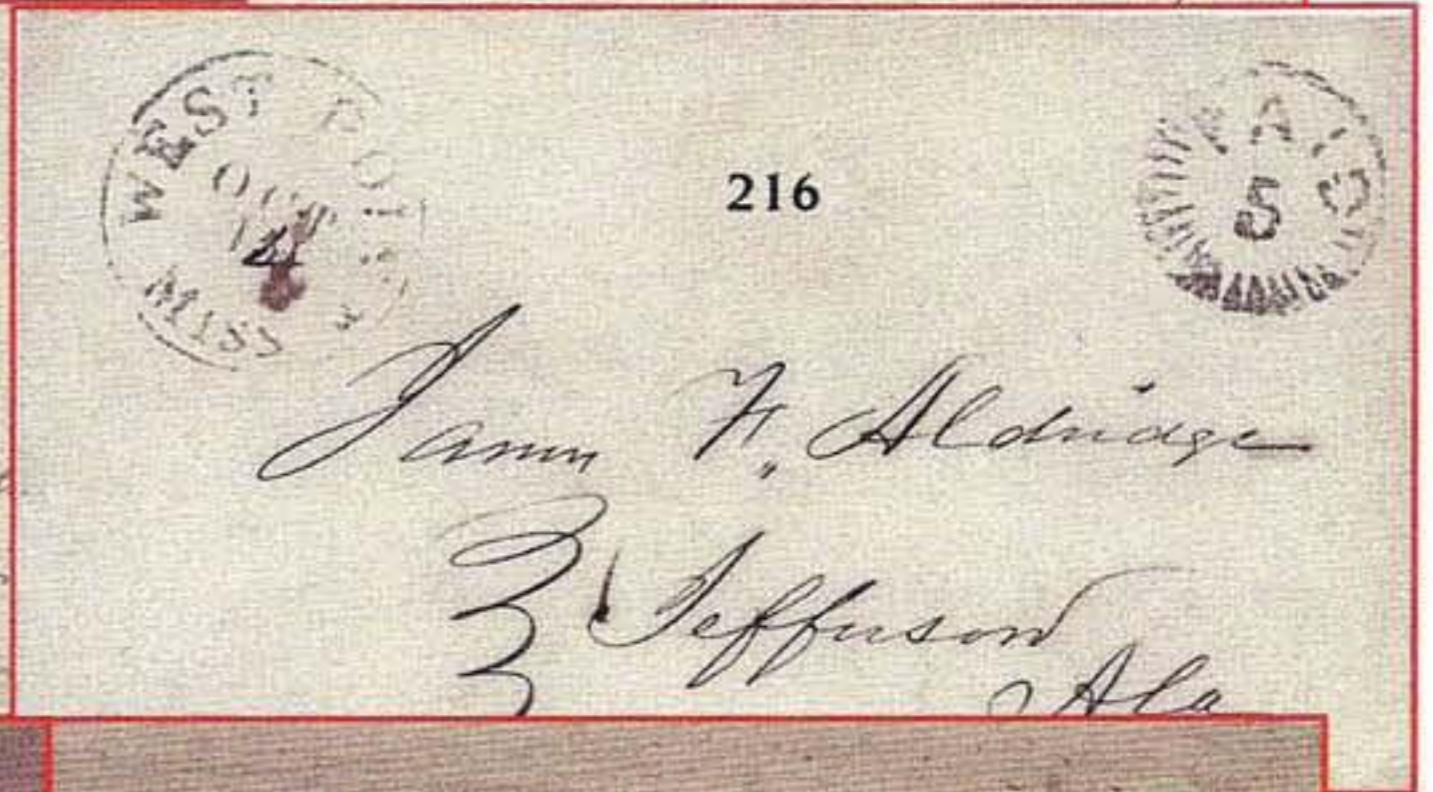 WEST POINT
OCT
14
MISS
PAID
5
216
James F. Aldridge
Jefferson
Ala